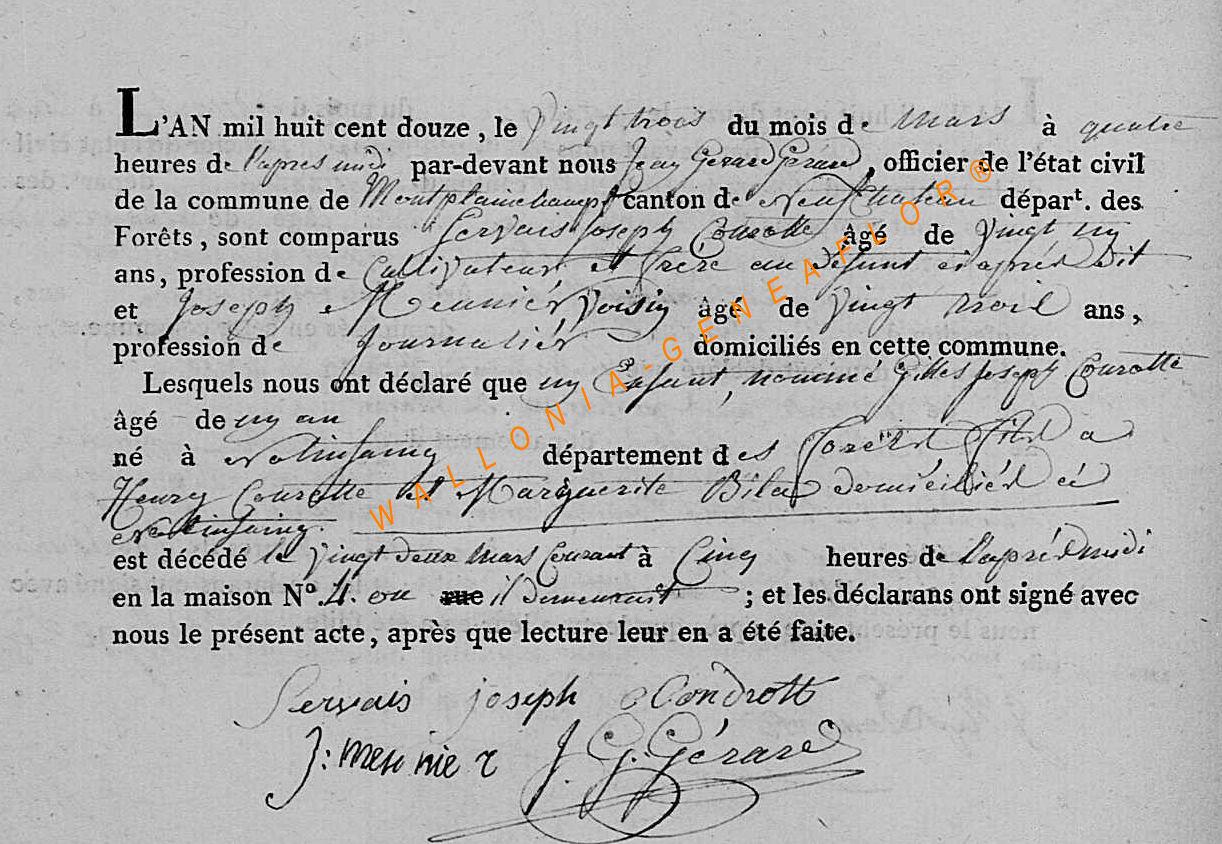 L'AN mil huit cent douze, le vingt trois du mois de mars à quatre
heures de l'apres midi par-devant nous Jean Gerard Gerard, officier de l'état civil
de la commune de Montplainchamps canton de Neufchateau départ. des
Forêts, sont comparus Servais Joseph Courotte âgé de vingt un
ans, profession de Cultivateur et frere au defunt ci après dit
et Joseph Meunier voisin âgé de vingt trois ans,
profession de Journalier domiciliés en cette commune.
Lesquels nous ont déclaré que un Enfant, nommé Gilles Joseph Courotte
âgé de un an
né à département des forêts fils a
Henry Courotte et Marguerite domiciliés à
est décédé le vingt deux mars Courant à Cinq heures de l'après midi
en la maison N°. 4. ou rue il demeurait ; et les déclarans ont signé avec
nous le présent acte, après que lecture leur en a été faite.
Servais joseph Condrott
J: meunier J. G. Gérard
WALLONIA-GENEAFLOR®